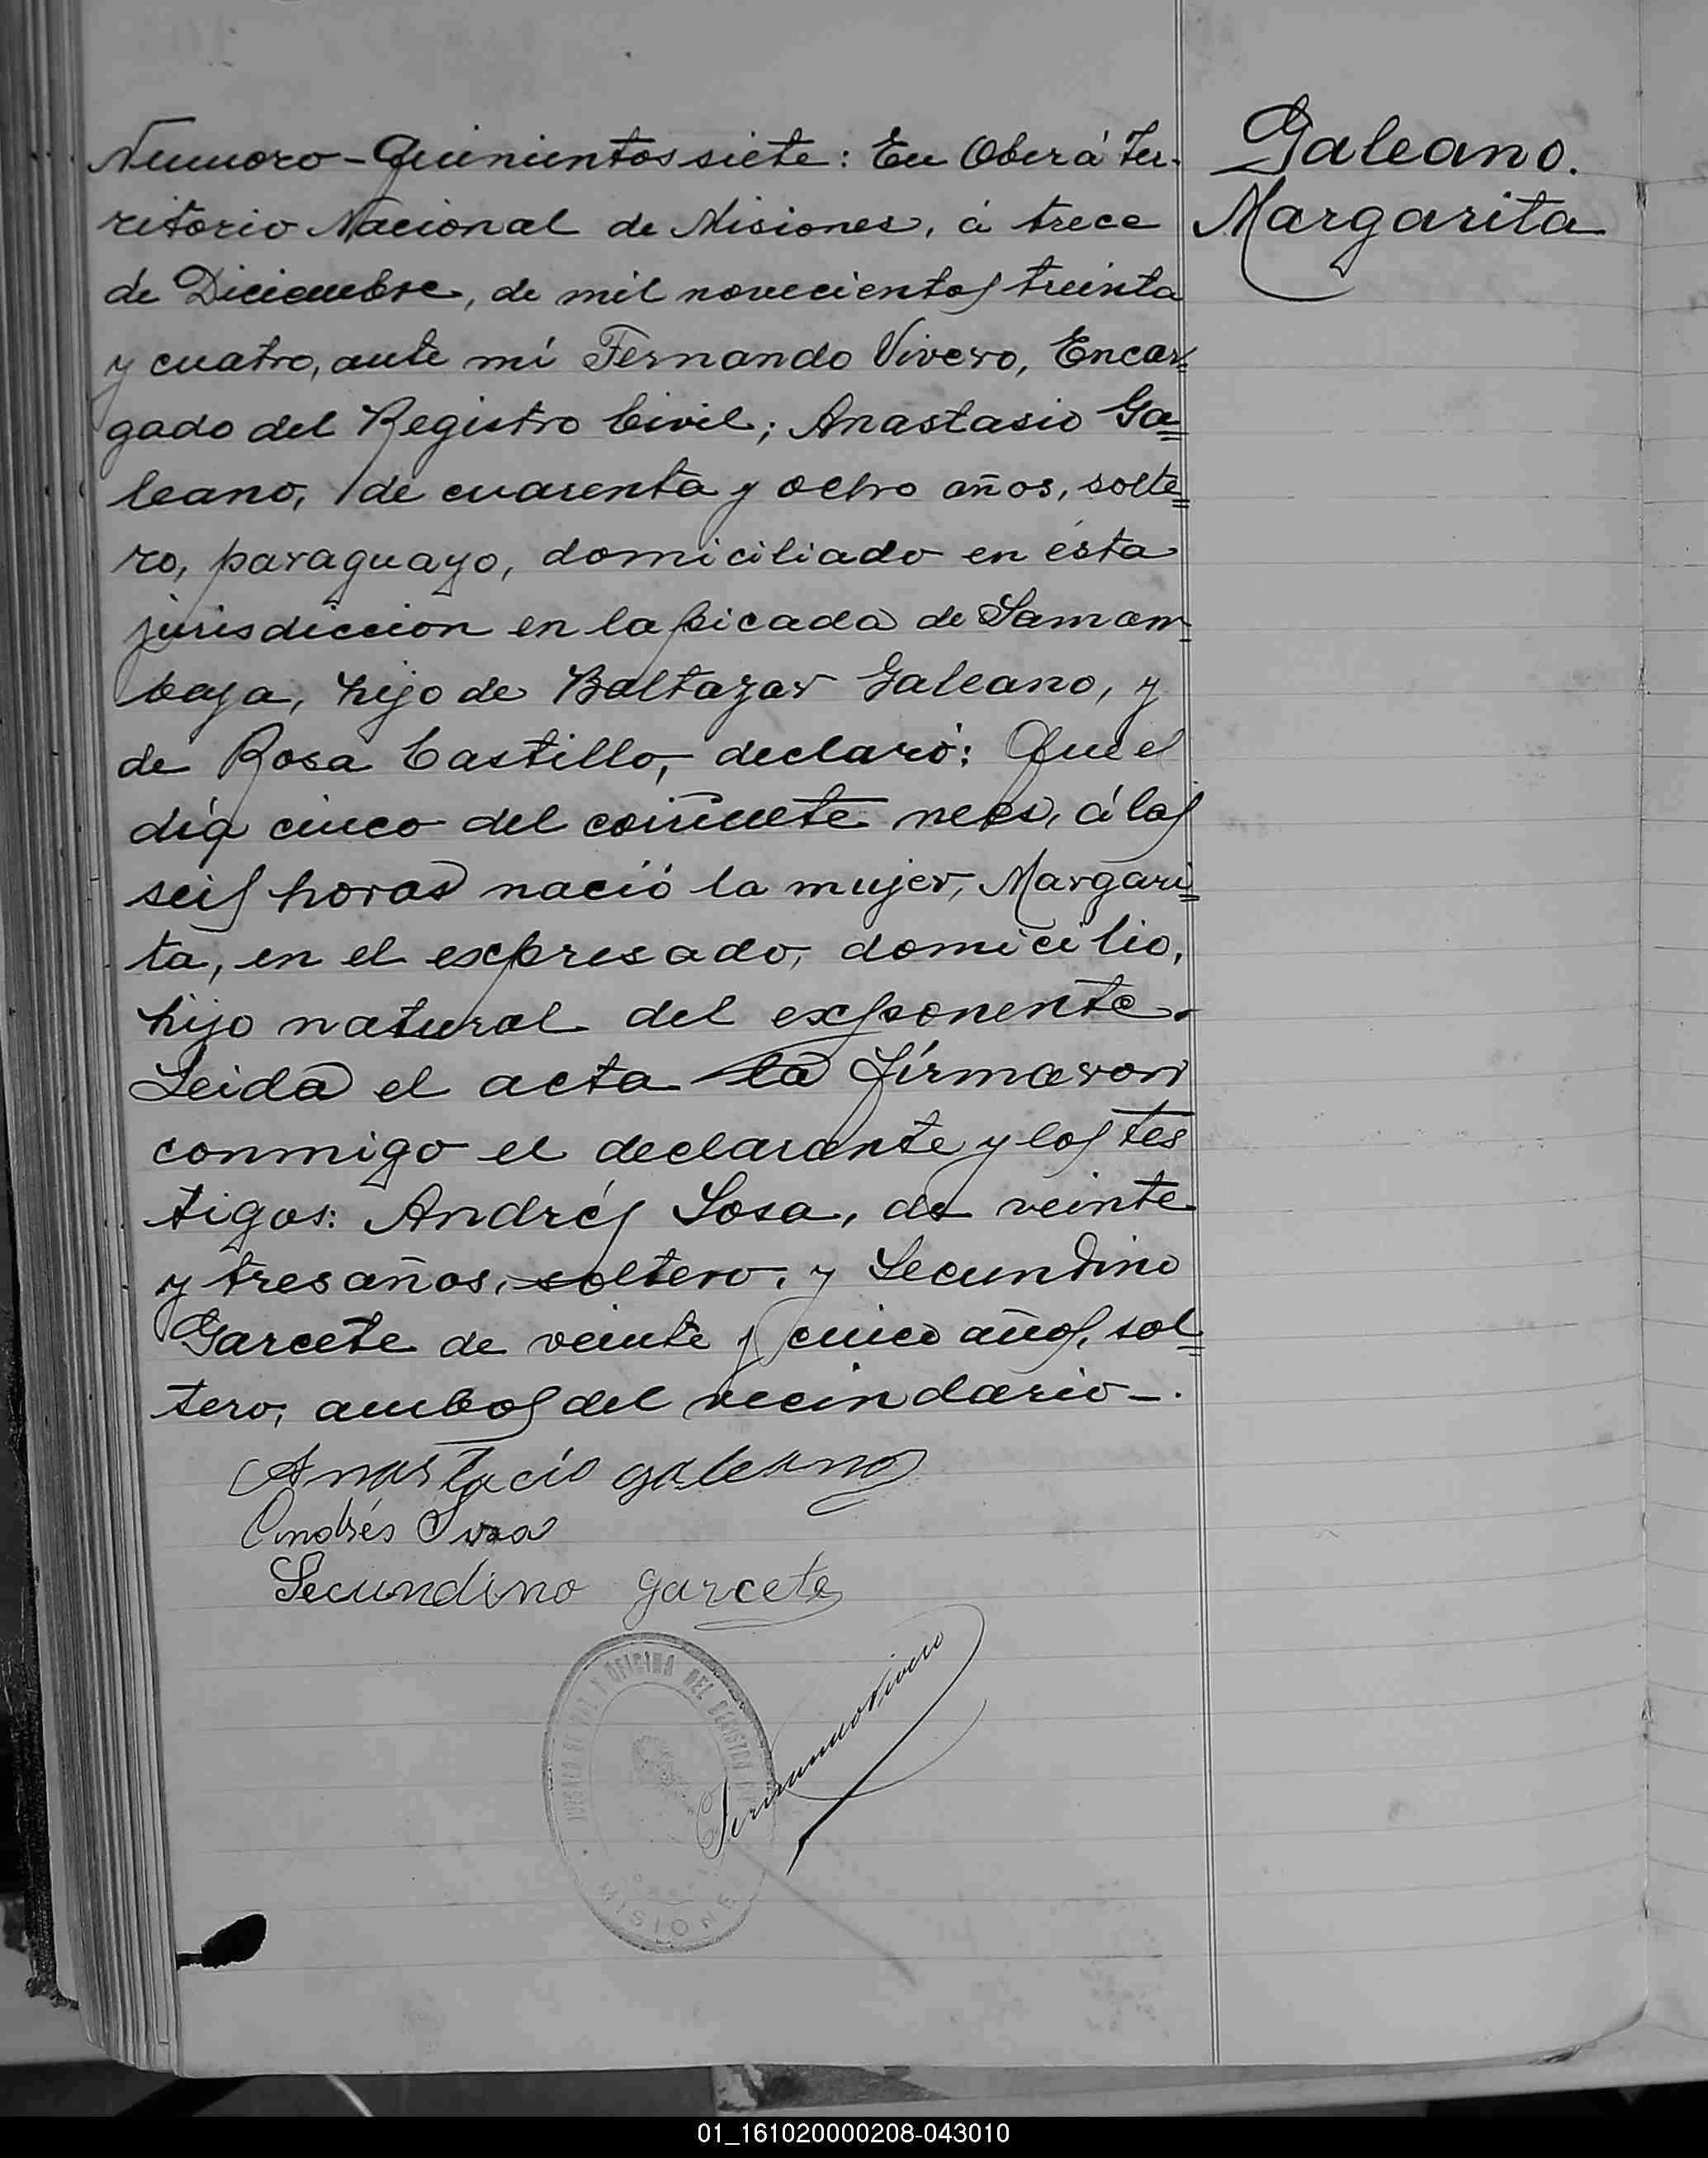 Numero-Quinientos siete: En Oberá Ter-
ritorio Nacional de Misiones, á trece
de Diciembre, de mil novecientos treinta
y cuatro, ante mi Fernando Vivero, Encar=
gado del Registro Civil; Anastasio Ga=
leano, de cuarenta y ocho años, solte=
ro, paraguayo, domiciliado en ésta
jurisdiccion en la picada de Samam-
baya, hijo de Baltazar Galeano, y
de Rosa Castillo, declaró: Que el
día cinco del corriente mes, á las
seis horas nació la mujer, Margari=
ta, en el expresado, domicilio,
hijo natural del exponente.
Leida el acta la firmaron
conmigo el declarante y los tes
tigos: Andrés Sosa, de veinte
y tres años, soltero, y Secundino
Garcete de veinte y cinco años, sol=
tero, ambos del vecindario-.
Galeano.
Margarita
Anastacio galeano
Andrés Sosa
Secundino garcete
Fernando Vivero
JUZGADO DE PAZ Y OFICINA DEL REGISTRO
MISIONES
01_161020000208-043010